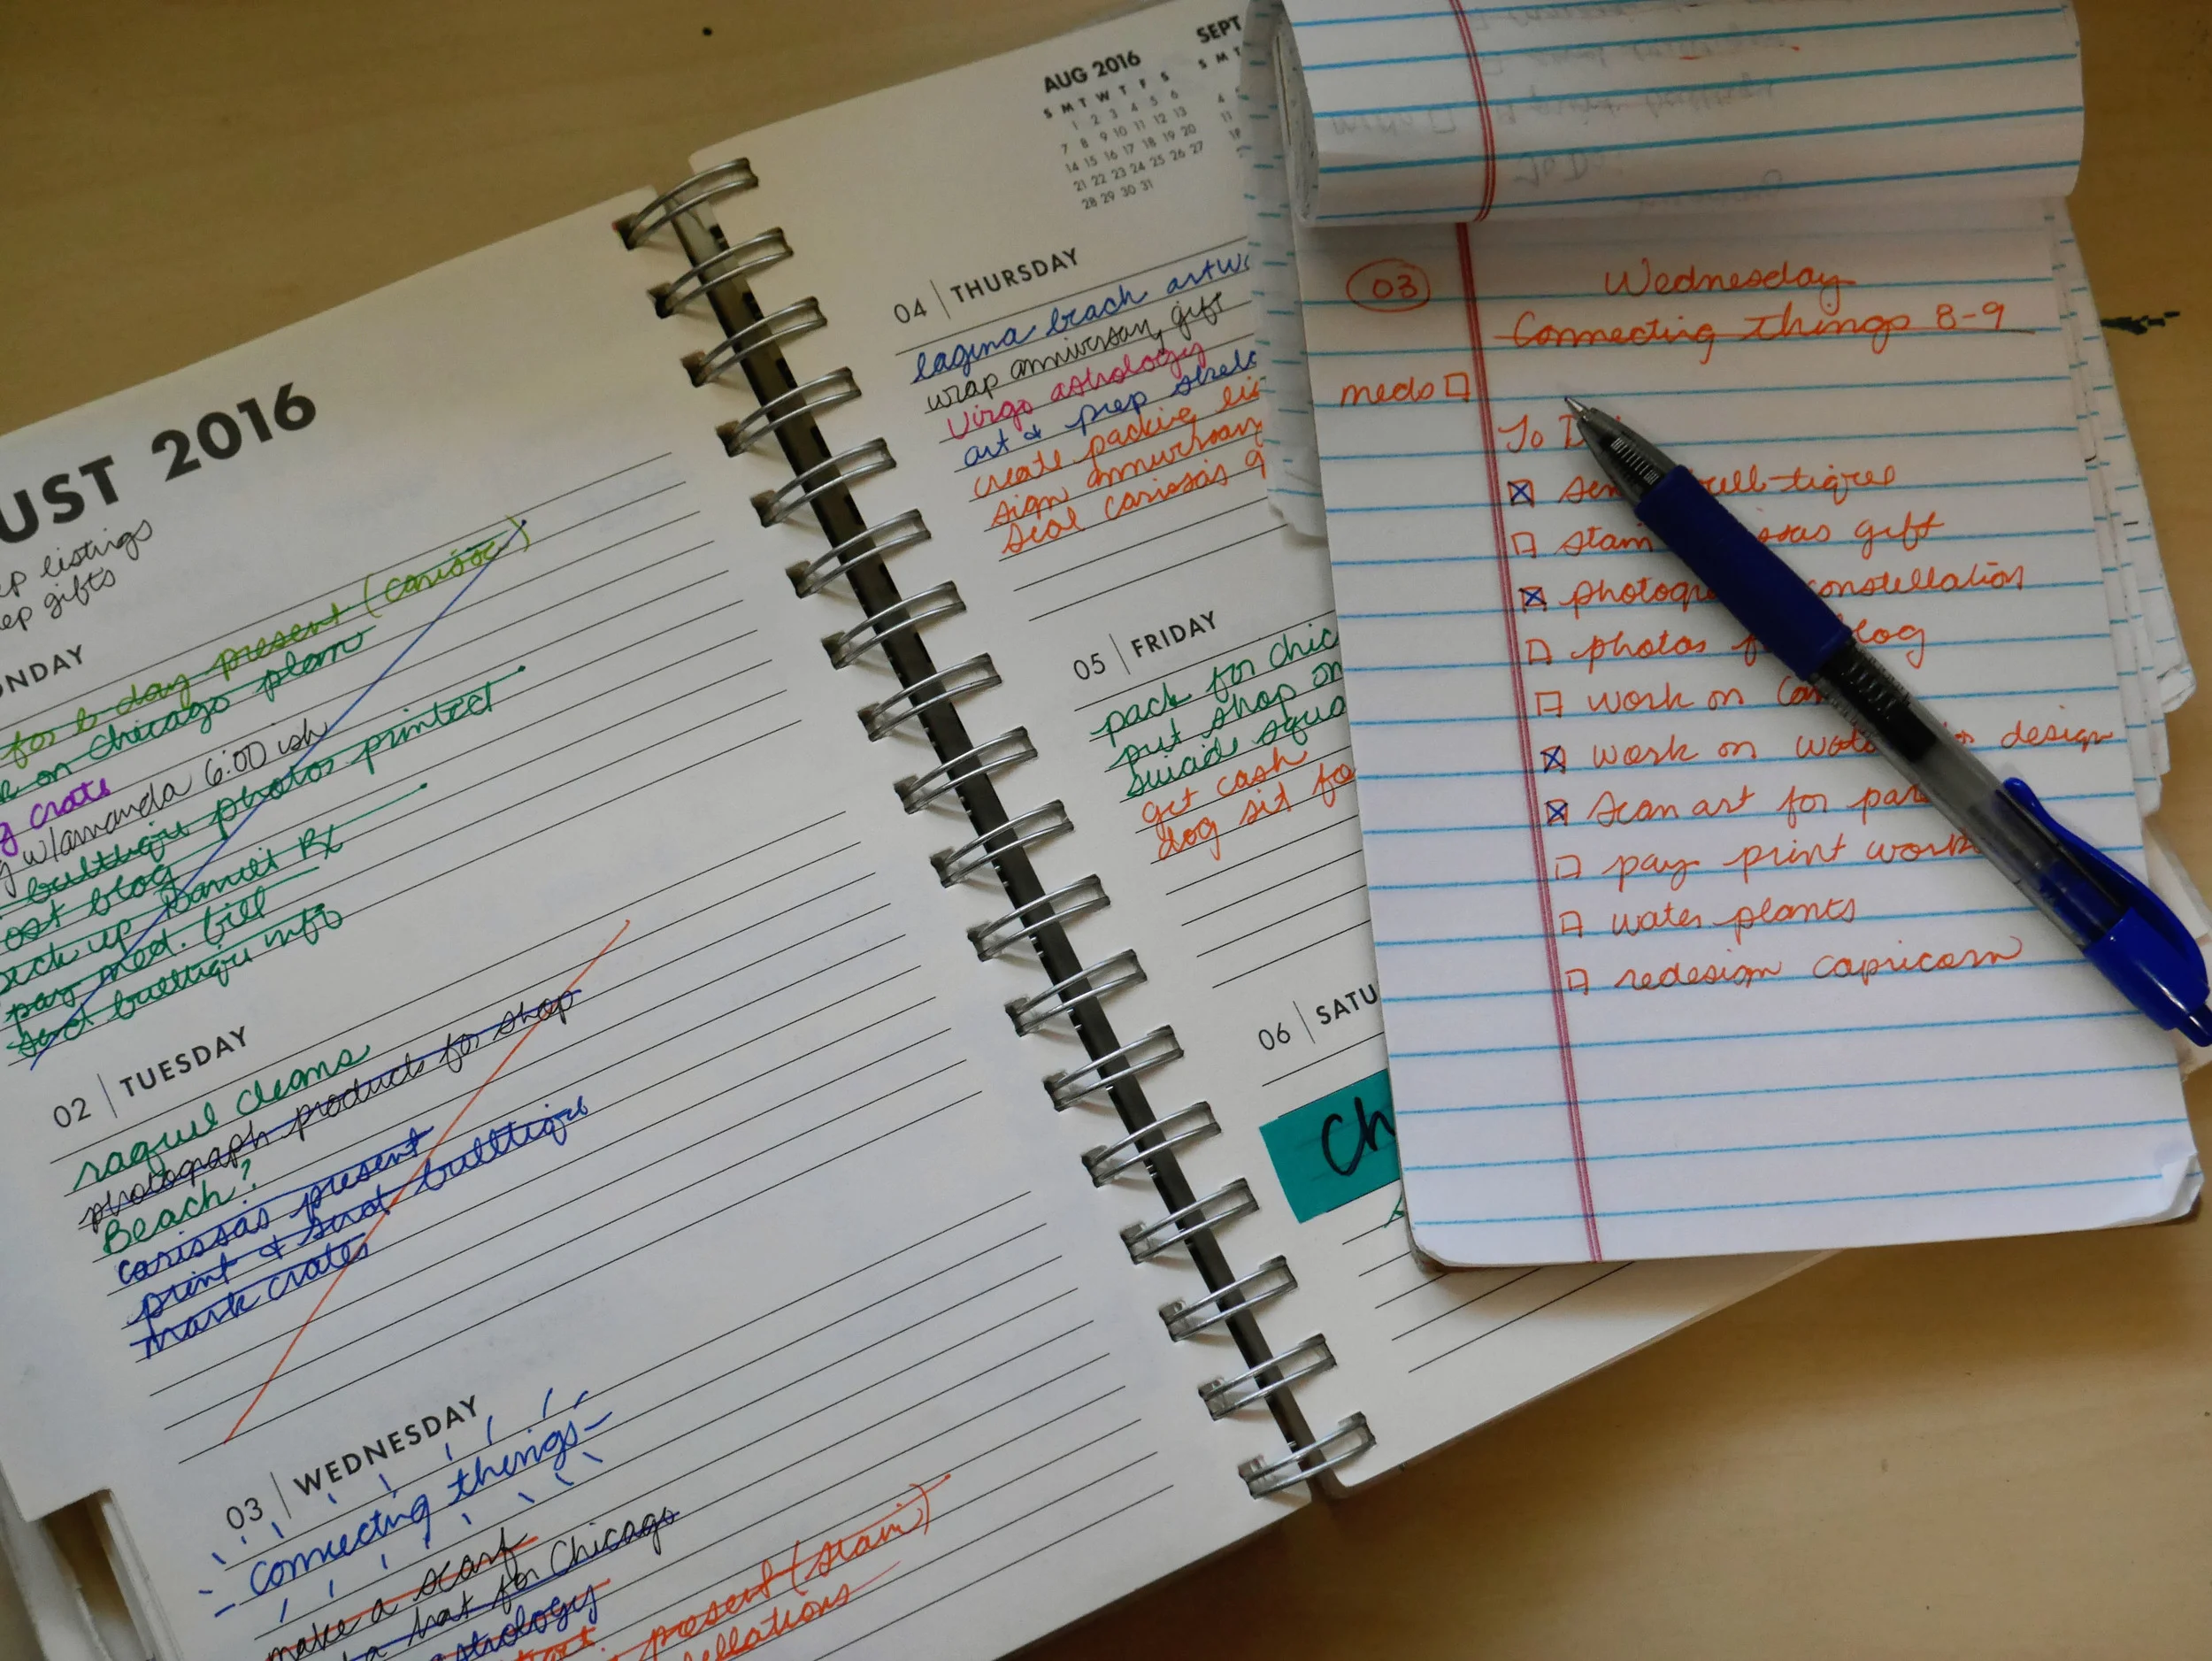 UST 2016
listings
gifts
ONDAY
for b-day present (carissa)
on Chicago plans
crate
w/amanda 6:00 ish
bulltique photos printed
ost blog
pick up Daniel Rx
pay med. bill
send bulltique info
02 | TUESDAY
raquel cleans
photograph products for shop
Beach?
carissas present
print & send bulltique
mark crates
03 | WEDNESDAY
connecting things
make a scarf
a hat for Chicago
astrology
present (stain)
AUG 2016
S M T W T F S
1 2 3 4 5 6
7 8 9 10 11 12 13
14 15 16 17 18 19 20
21 22 23 24 25 26 27
28 29 30 31
SEPT
S M T
4
11
04 | THURSDAY
lagina beach artwo
wrap anniversary gift
Virgo astrology
art & prep
create packing lis
sign anniversary
seal carissas g
05 | FRIDAY
pack for Chic
put shop on
suicide squa
get cash
dog sit fo
06 | SATU
Ch
03
Wednesday
Connecting Things 8-9
meds
To D
sen bull-tiques
stain ssas gift
photogr constellation
photos f blog
work on
work on design
scan art for
pay print work
water plants
redesign capricorn